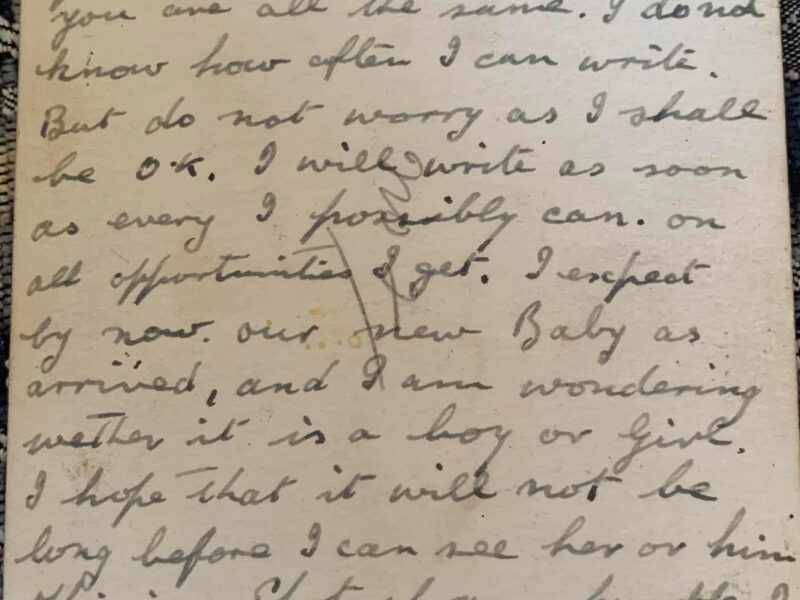 you are all the same. I do not
know how often I can write.
But do not worry as I shall
be O.K. I will write as soon
as every I possibly can. on
all opportunities I get. I expect
by now. our new Baby as
arrived, and I am wondering
wether it is a boy or Girl.
I hope that it will not be
long before I can see her or him